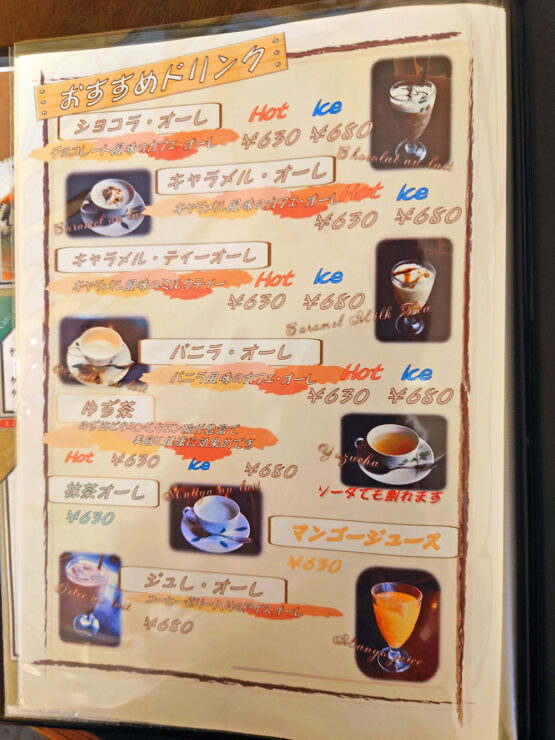 おすすめドリンク
ショコラ・オーレ
Hot Ice
チョコレート風味のカフェ・オーレ
¥630 ¥680
Chocolat au lait
キャラメル・オーレ
Caramel au lait
キャラメル風味のカフェ・オーレ
Hot Ice
¥630 ¥680
キャラメル・ティーオーレ
キャラメル風味のミルクティー
Hot Ice
¥630 ¥680
Caramel Milk Tea
バニラ・オーレ
バニラ風味のカフェ・オーレ
Hot Ice
¥630 ¥680
ゆず茶
美容と健康に効果的です
Hot ¥630 Ice ¥680
Yuzucha
ソーダでも割れます
抹茶オーレ
¥630
Mattya au lait
マンゴージュース
¥630
Mango juice
ジュレ・オーレ
コーヒーゼリー入りのアイスオーレ
¥680